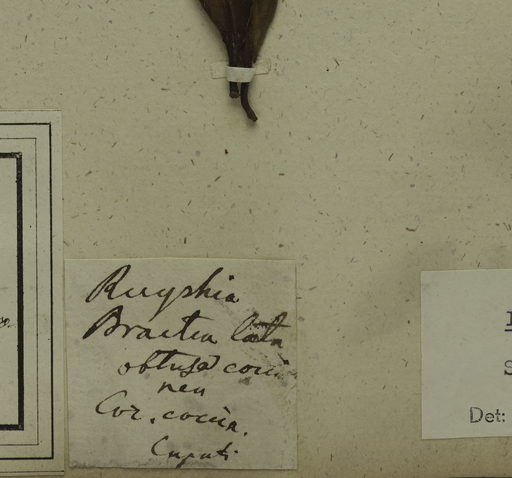 Ruyshia
Bractea lata
obtusa cocci
nea
Cor. coccin.
Cuputi.
Det: